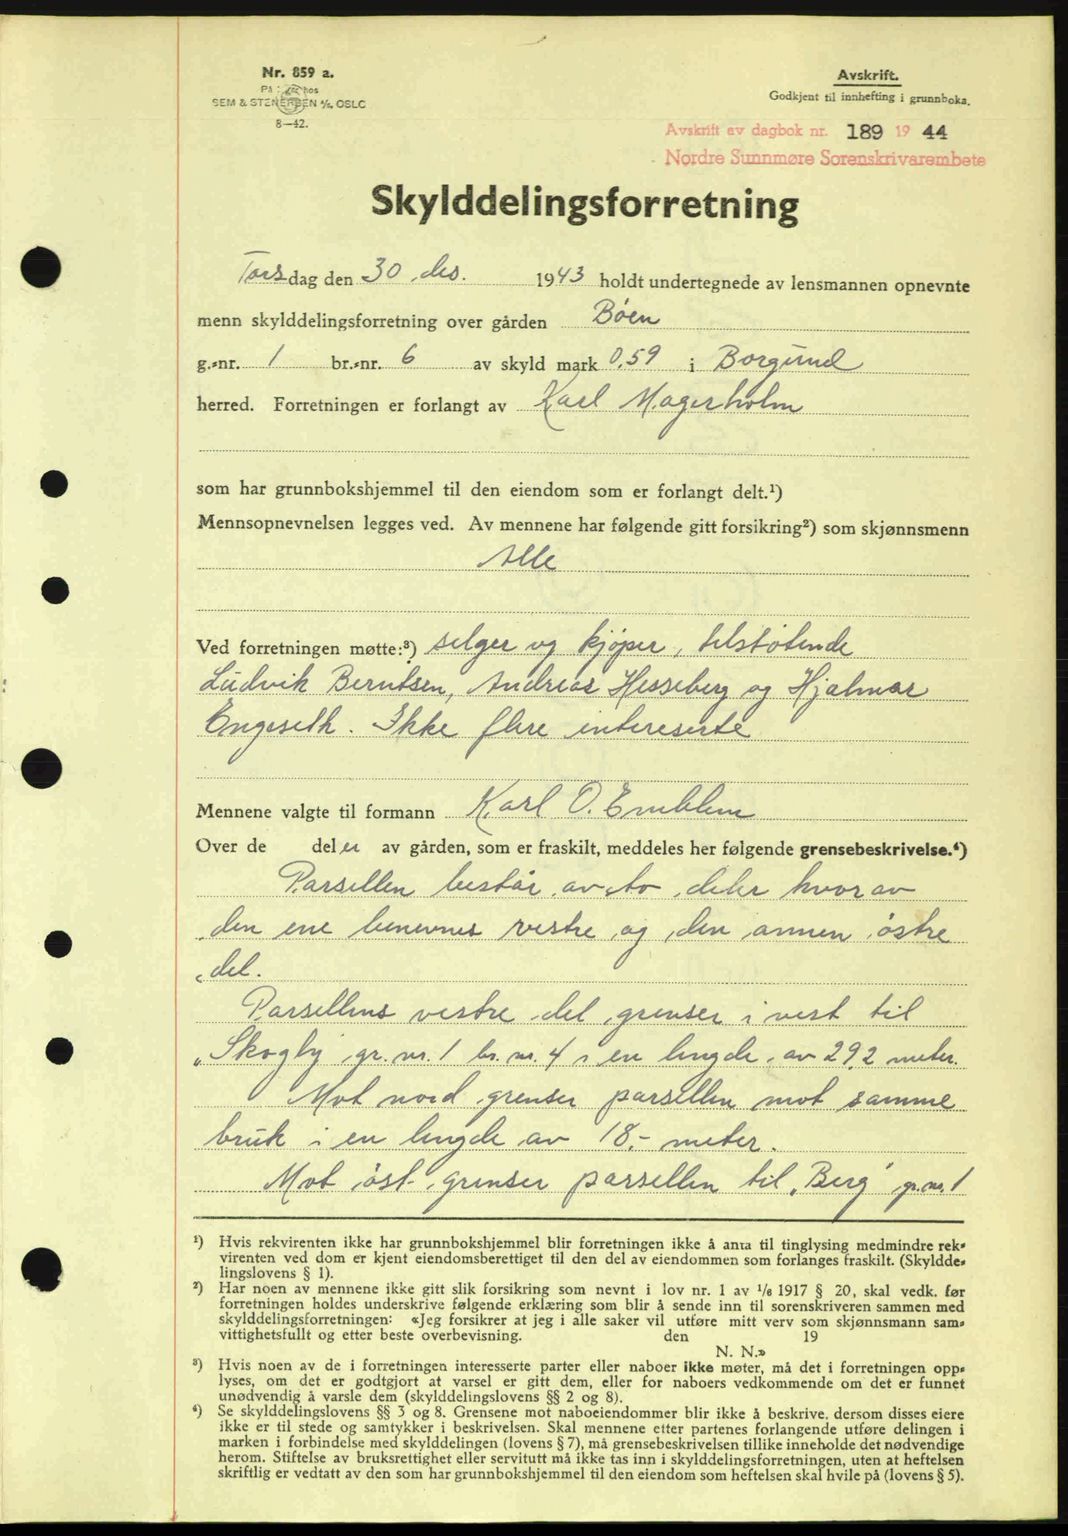 Nr. 859 a.
SEM & STENERSEN A/S, OSLO
8—42.
Avskrift.
Godkjent til innhefting i grunnboka.
Avskrift av dagbok nr. 189 19 44
Nordre Sunnmøre Sorenskrivarembete
Skylddelingsforretning
Torsdag den 30 des. 1943 holdt undertegnede av lensmannen opnevnte
menn skylddelingsforretning over gården Bøen
g.-nr. 1 br.-nr. 6 av skyld mark 0,59 i Borgund
herred. Forretningen er forlangt av Karl Magerholm
som har grunnbokshjemmel til den eiendom som er forlangt delt.¹)
Mennsopnevnelsen legges ved. Av mennene har følgende gitt forsikring²) som skjønnsmenn
Alle
Ved forretningen møtte:³) selger og kjøper, tilstøtende
Ludvik Berntsen, Andreas Hesseberg og Hjalmar
Engeseth. Ikke flere intereserte
Mennene valgte til formann Karl O. Emblem
Over de deler av gården, som er fraskilt, meddeles her følgende grensebeskrivelse.⁴)
Parsellen består av to deler hvorav
den ene benevnes vestre og den annen østre
del.
Parsellens vestre del grenser i vest til
"Skogly" gr. nr. 1 br. nr. 4 i en lengde av 29,2 meter.
Mot nord grenser parsellen mot samme
bruk i en lengde av 18,- meter.
Mot øst grenser parsellen til "Berg" gr. nr. 1
¹) Hvis rekvirenten ikke har grunnbokshjemmel blir forretningen ikke å anta til tinglysing medmindre rek-
virenten ved dom er kjent eiendomsberettiget til den del av eiendommen som forlanges fraskilt. (Skyldde-
lingslovens § 1).
²) Har noen av mennene ikke gitt slik forsikring som nevnt i lov nr. 1 av 1/6 1917 § 20, skal vedk. før
forretningen holdes underskrive følgende erklæring som blir å sende inn til sorenskriveren sammen med
skylddelingsforretningen: «Jeg forsikrer at jeg i alle saker vil utføre mitt verv som skjønnsmann sam-
vittighetsfullt og etter beste overbevisning. den 19
N. N.»
³) Hvis noen av de i forretningen interesserte parter eller naboer ikke møter, må det i forretningen opp-
lyses, om det er godtgjort at varsel er gitt dem, eller for naboers vedkommende om det er funnet
unødvendig å varsle dem (skylddelingslovens §§ 2 og 8).
⁴) Se skylddelingslovens §§ 3 og 8. Grensene mot naboeiendommer blir ikke å beskrive, dersom disses eiere
ikke er til stede og samtykker i beskrivelsen. Skal mennene etter partenes forlangende utføre delingen i
marken i forbindelse med skylddelingen (lovens § 7), må grensebeskrivelsen tillike inneholde det nødvendige
herom. Stiftelse av bruksrettighet eller servitutt må ikke tas inn i skylddelingsforretningen, uten at heftelsen
skriftlig er vedtatt av den som har grunnbokshjemmel til den eiendom som heftelsen skal hvile på (lovens § 5).